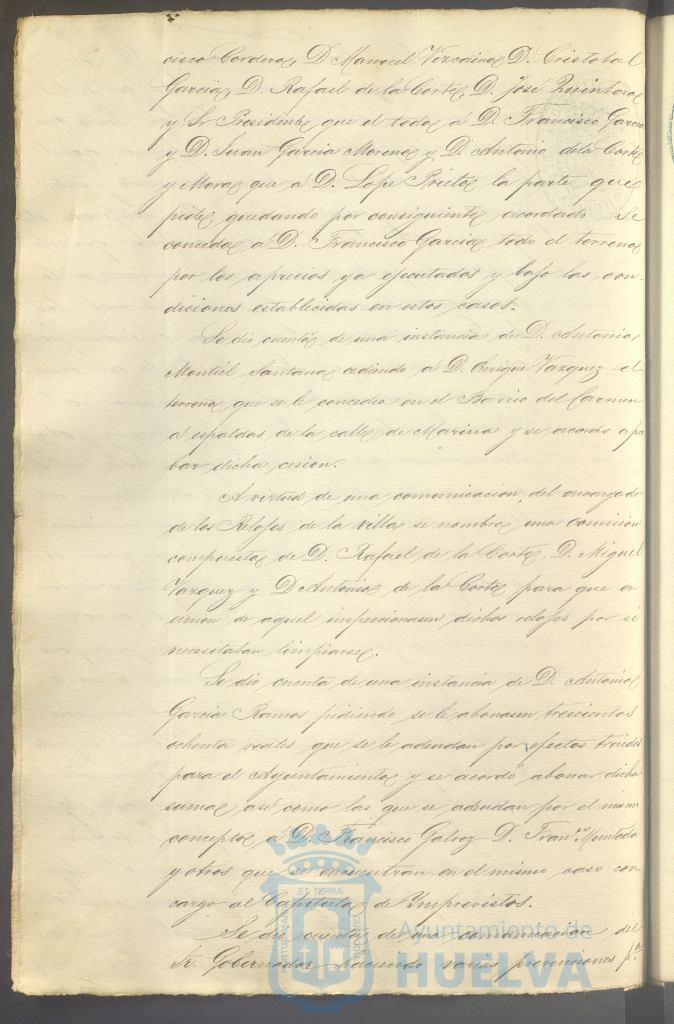 cisco Cordero, D Manuel Vizcaino, D. Cristobal
Garcia, D. Rafael de la Corte, D. José Quintero
y Sr Presidente, que el todo, á D. Francisco Garcia
y D. Juan Garcia Moreno, y D. Antonio dela Corte
y Mora, que á D. Lope Prieto, la parte que
pide, quedando por consiguiente acordado Se
conceda, á D. Francisco Garcia, todo el terreno
por los aprecios ya ejecutados y bajo las con-
diciones establecidas en estos casos.
Se dio cuenta de una instancia de D. Antonio
Montiel Santana, cediendo á D. Enrique Vazquez el
terreno, que se le concedio en el Barrio del Carmen
á espaldas de la calle, de Marina y se acordo apro
bar dicha cesion.
A virtud de una comunicacion del encargado
de los Relojes de la villa se nombra una comision
compuesta de D. Rafael de la Corte, D. Miguel
Vazquez y D Antonio de la Corte para que en
union de aquel inspeccionasen dichos relojes por si
necesitaban limpiarse.
Se dio cuenta de una instancia de D. Antonio
Garcia Ramos pidiendo se le abonasen trescientos
ochenta reales que se le adeudan por efectos traidos
para el Ayuntamiento, y se acordó abonar dicha
suma, asi como las que se adeudan por el mismo
concepto á D. Francisco Galvez D. Fran.co Muntada
y otros que se encuentran en el mismo caso con
cargo al Capitulo de Ymprevistos.
Se dio cuenta de una comunicacion del
Sr. Gobernador haciendo varias prevenciones p.a
ET TERRA
Ayuntamiento de
HUELVA